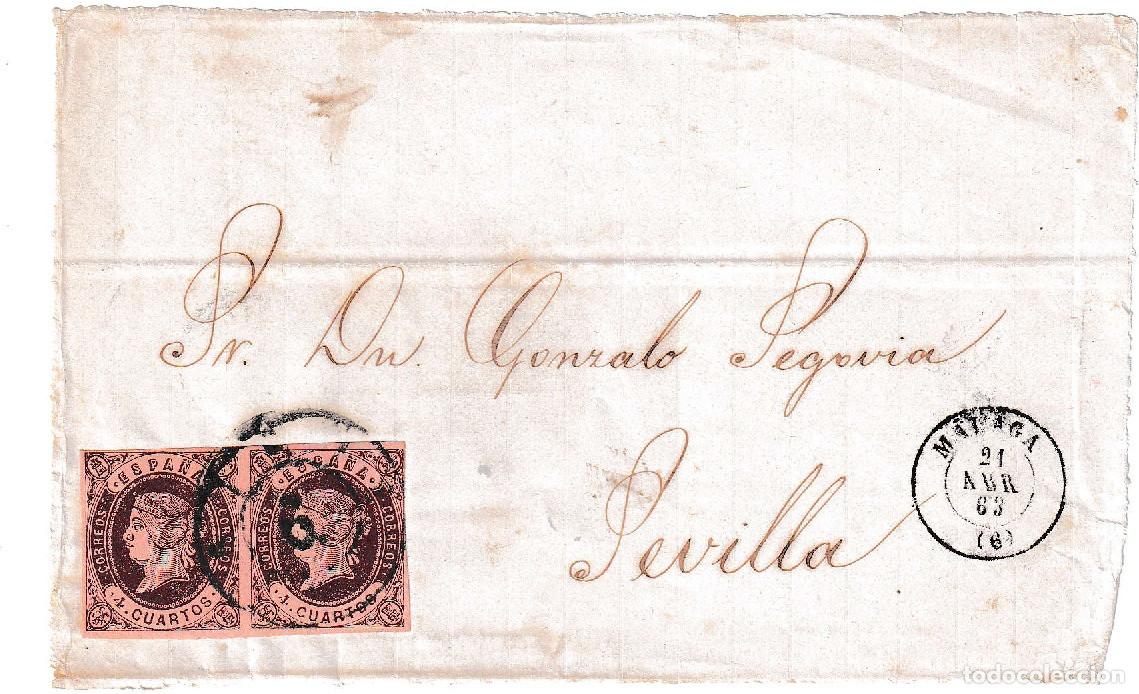 Sr. Dn. Gonzalo Segovia
Sevilla
MALAGA
21
ABR
63
(6)
ESPAÑA
CORREOS
CORREOS
4 CUARTOS
ESPAÑA
CORREOS
CORREOS
4 CUARTOS
6
todocoleccion